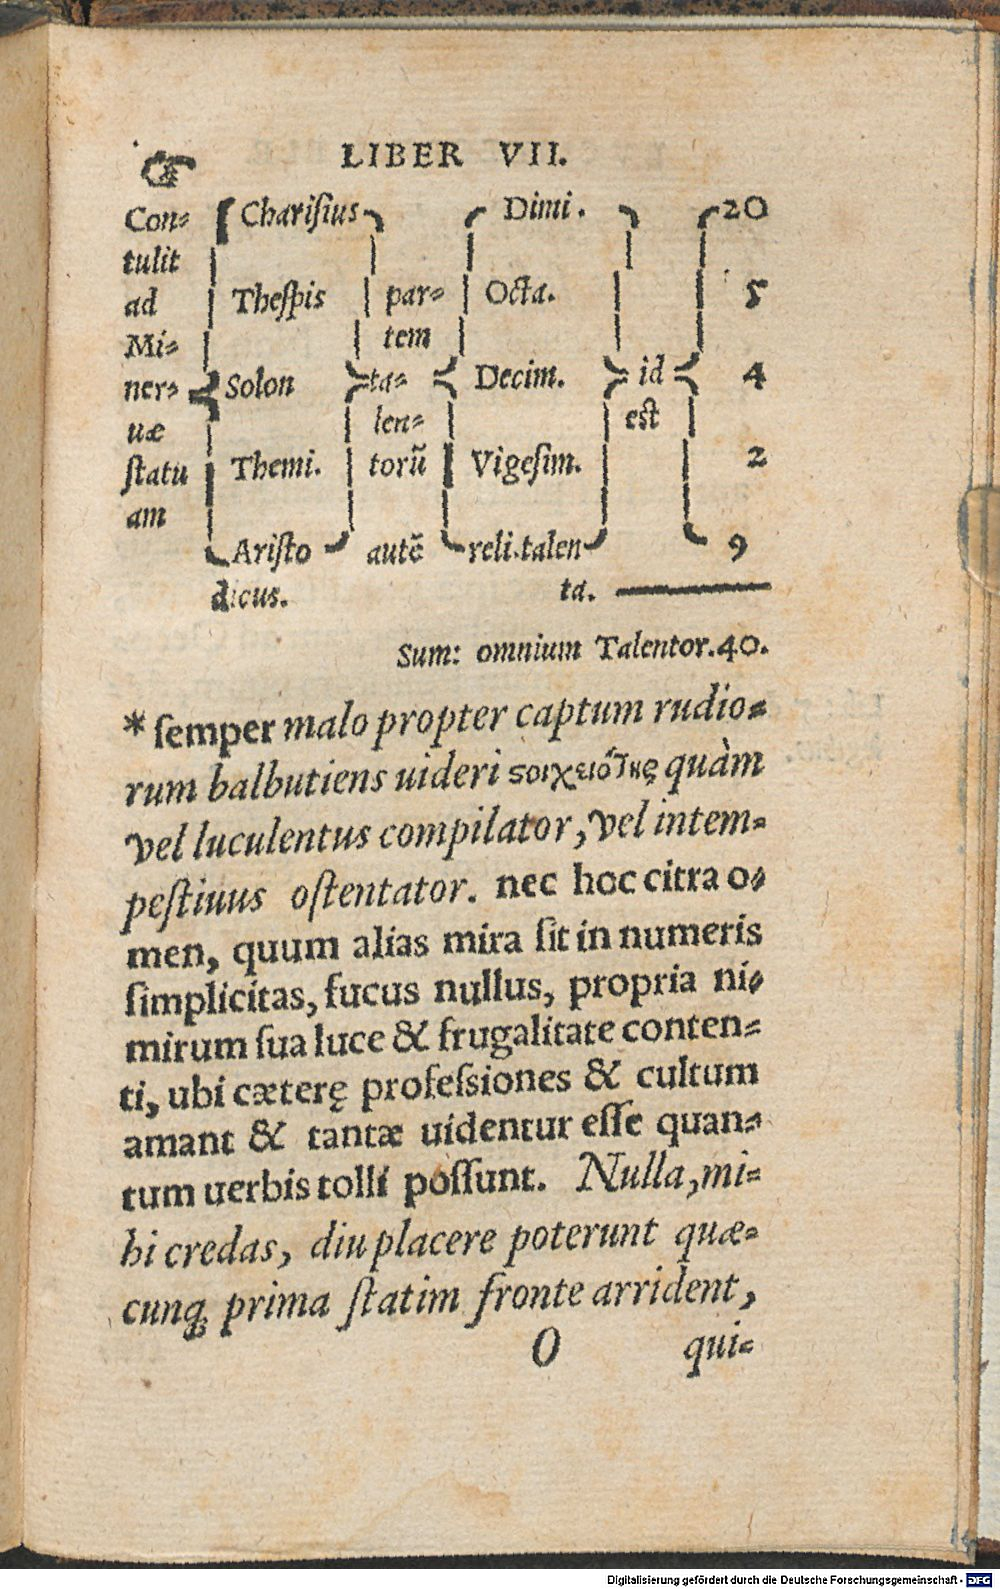 LIBER VII.
Con⸗ Chariſius Dimi. 20
tulit
ad Theſpis par⸗ Octa. 5
Mi⸗ tem
ner⸗ Solon ta⸗ Decim. id 4
uæ len⸗ est
ſtatu Themi. torũ Vigeſim. 2
am
Ariſto autẽ reli.talen 9
dicus. ta.
Sum: omnium Talentor.40.
* ſemper malo propter captum rudio⸗
rum balbutiens uideri quàm
vel luculentus compilator, vel intem⸗
peſtiuus oſtentator. nec hoc citra o⸗
men, quum alias mira ſit in numeris
ſimplicitas, fucus nullus, propria ni⸗
mirum ſua luce & frugalitate conten⸗
ti, ubi cæterę profeſsiones & cultum
amant & tantæ uidentur eſſe quan⸗
tum uerbis tolli poſſunt. Nulla, mi⸗
hi credas, diu placere poterunt quæ⸗
cunqꝫ prima ſtatim fronte arrident,
O qui⸗
Digitalisierung gefördert durch die Deutsche Forschungsgemeinschaft - DFG